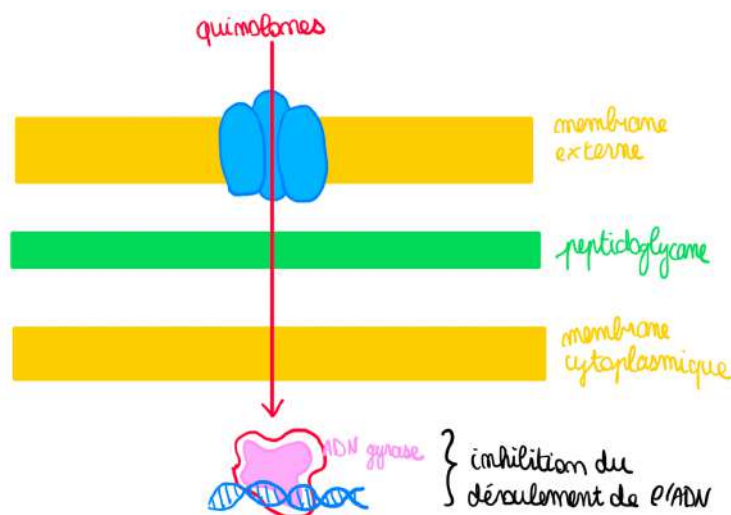 quinolones
membrane
externe
peptidoglycane
membrane
cytoplasmique
ADN gyrase
inhibition du
déroulement de l'ADN